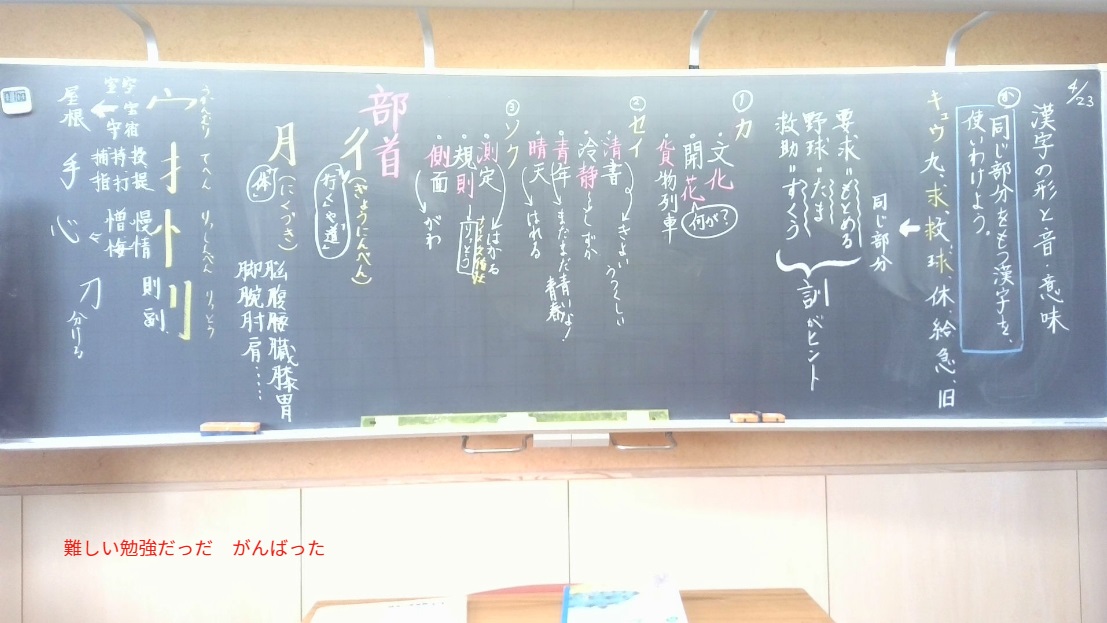 4/23
漢字の形と音・意味
め 同じ部分をもつ漢字を、
使いわけよう。
キュウ 九、求、救、球、休、給、急、旧
同じ部分
要求=もとめる
野球=たま
救助=すくう
訓がヒント
① カ
・文化
・開花
何が?
・貨物列車
② セイ
・清書→きよい うつくしい
・冷静→しずか
・青年→まだまだ青いよ!
青春
・晴天→はれる
③ ソク
・測定→はかる
・規則
りっとう
・側面→がわ
部首
彳(ぎょうにんべん)
行くや道
月(にくづき)
体
脳腹腰臓膝胃
脚腕肘肩……
宀 うかんむり
字宝宿
室守
屋根
扌 てへん
投提
持打
捕指
手
忄 りっしんべん
慢情
憎悔
心
刂 りっとう
則副
刀 分ける
難しい勉強だっだ がんばった